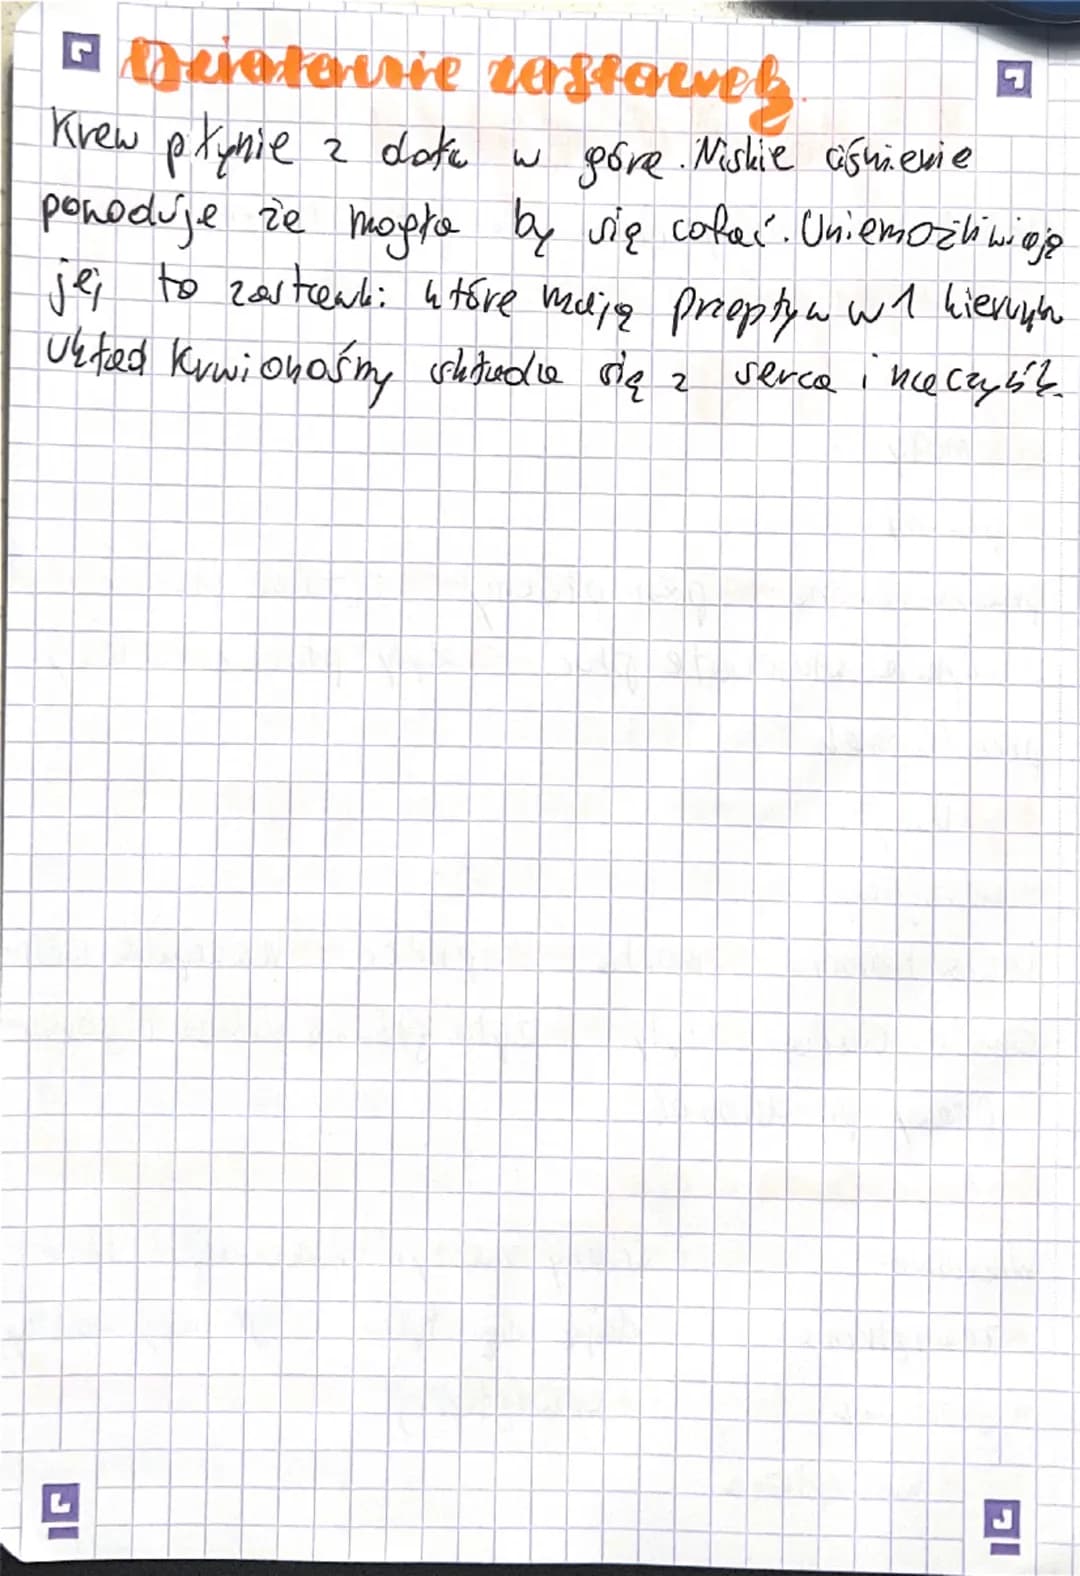 Działanie zastawek.
Krew płynie z dołu w górę. Niskie ciśnienie
powoduje że mogła by się cofać. Uniemożliwiają
jej to zastawki które mają przepływ w 1 kierunku
Układ krwionośny składa się z serca i naczyń.